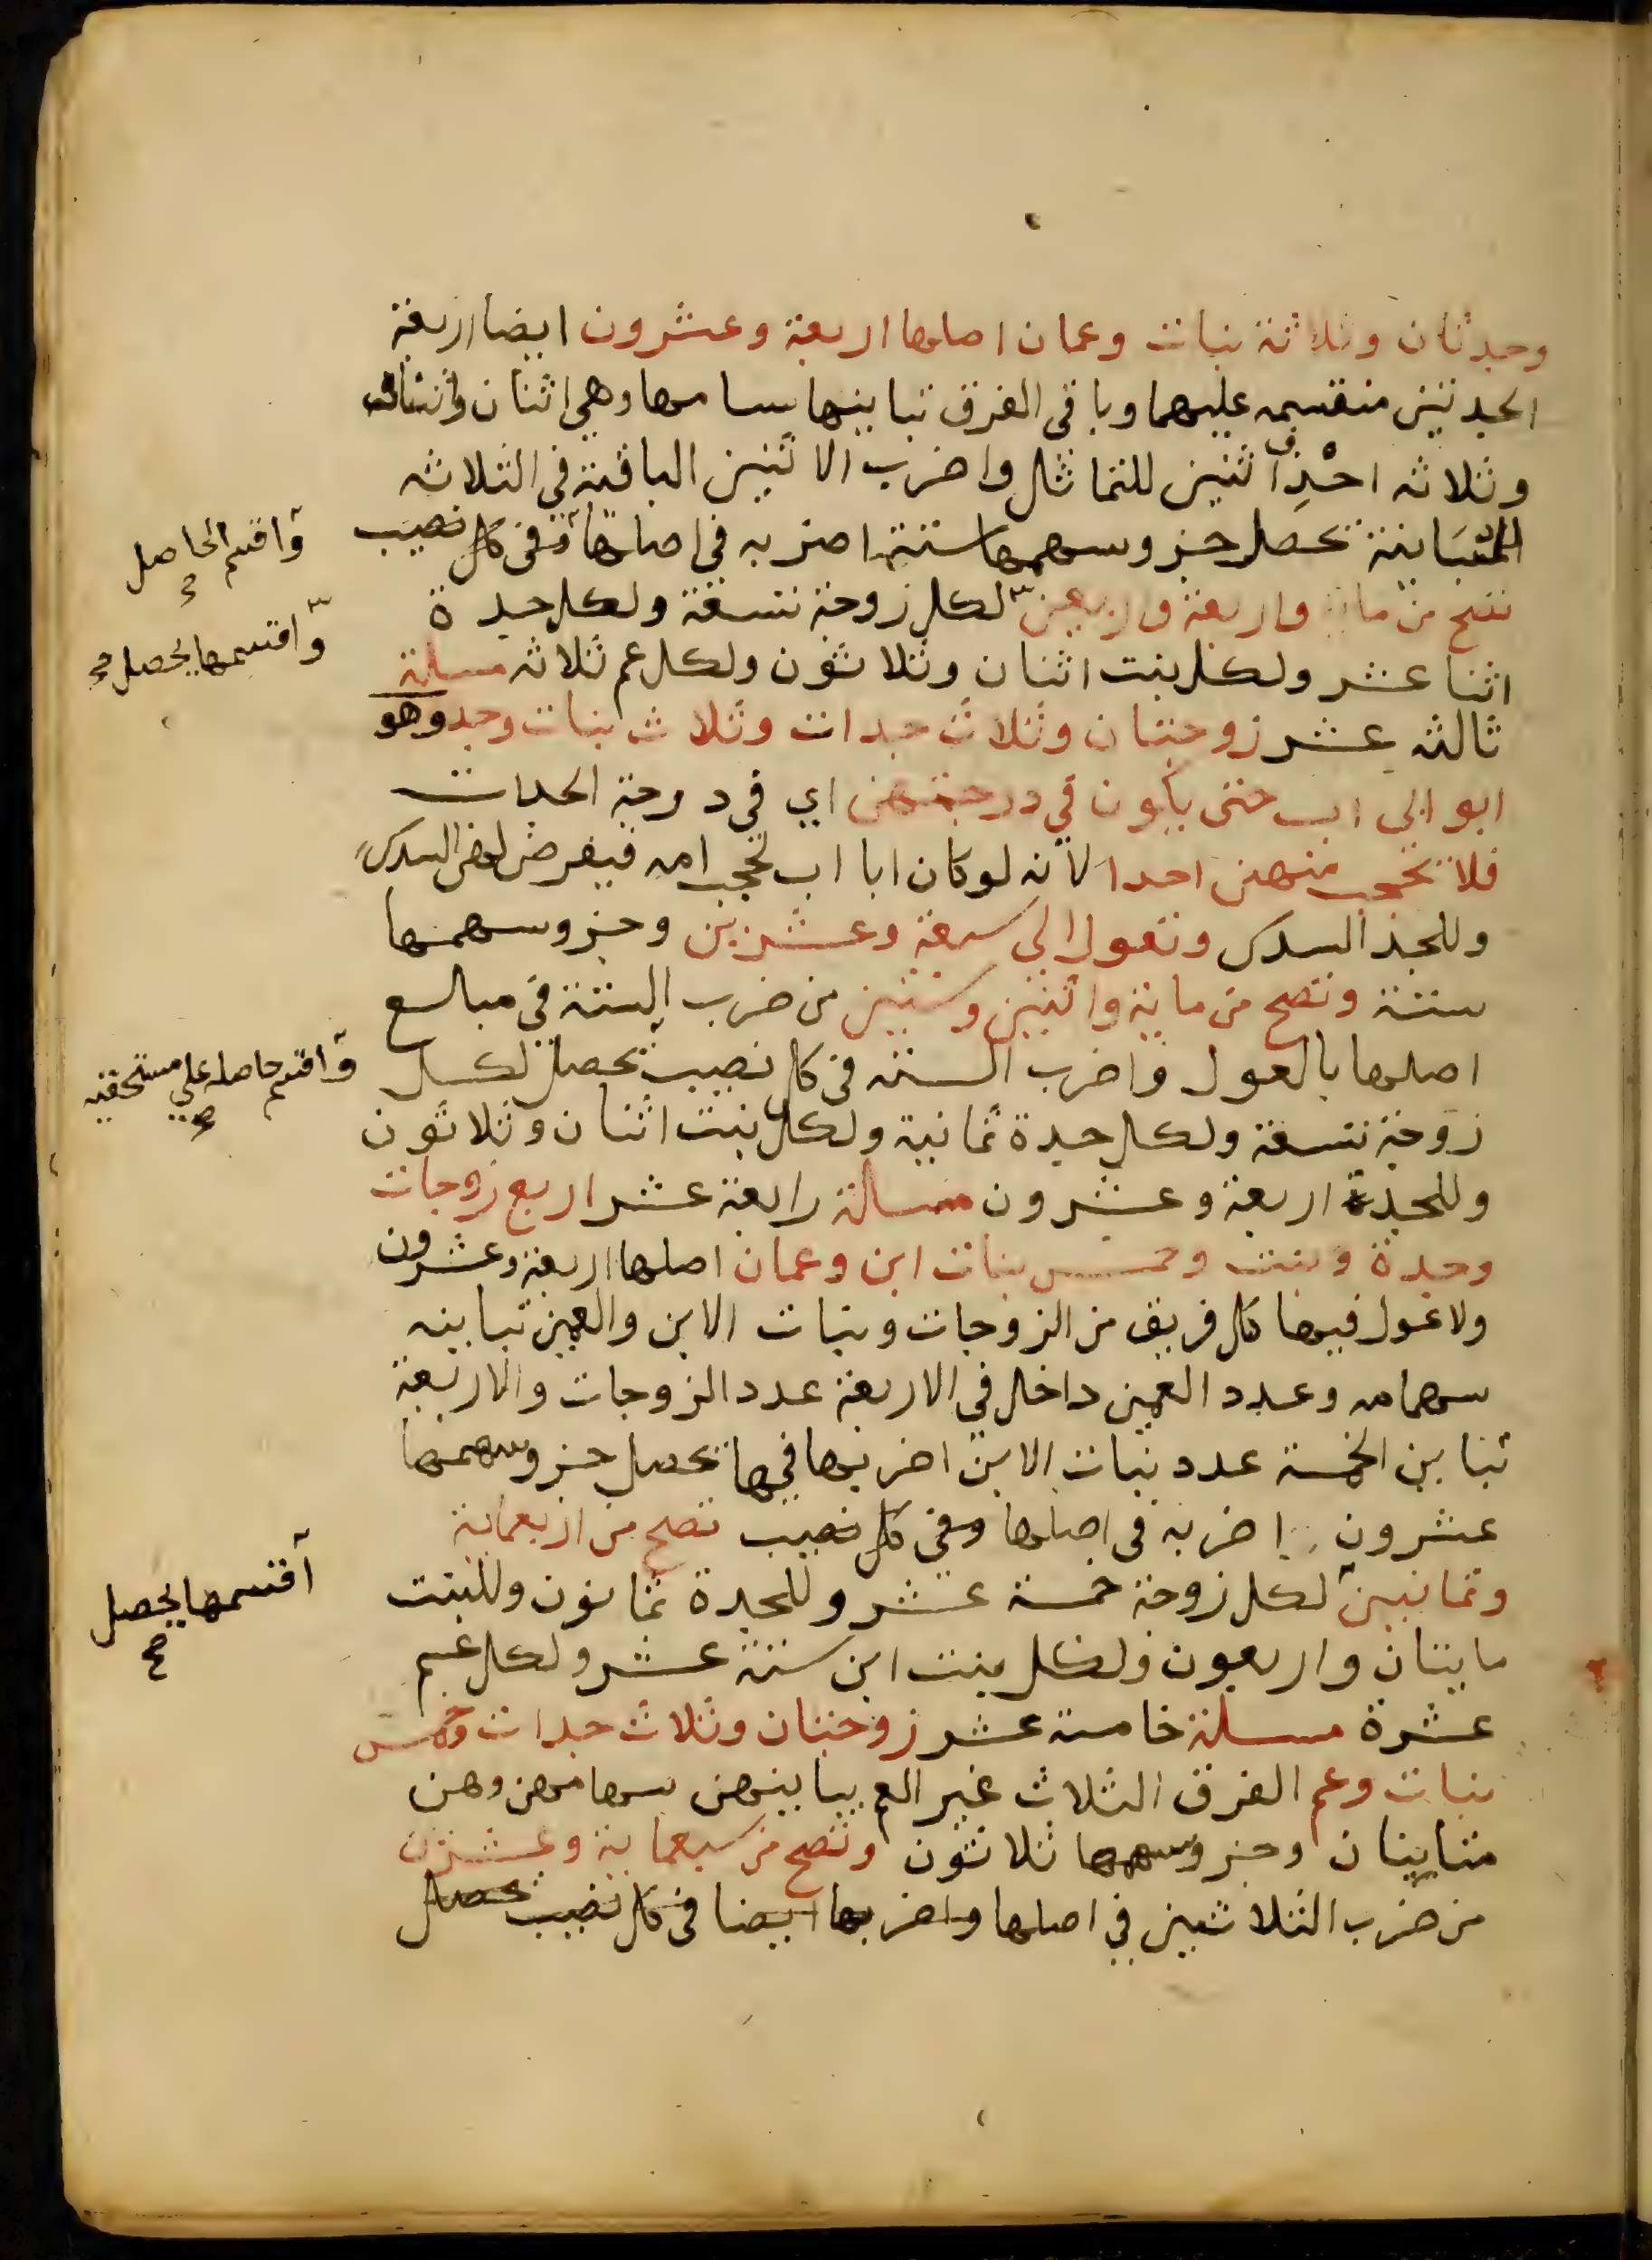 وجدتان وثلاثة بنات وعمان اصلها اربعة وعشرون ايضا اربعة
الجدتين منقسمه عليهما وباقى الفرق تباينها سهامها وهي اثنان واثنان
وثلاثه احْذِف اثنين للتماثل واضرب الاثنين الباقية في الثلاثه
المتبَاينة تحصل جزو سهمها ستة اضربه فى اصلها وفى كل نصيب
تصح من ماية واربعة واربعين لكل زوجة تسعة ولكل جدة
اثنا عشر ولكل بنت اثنان وثلاثون ولكل عم ثلاثه مسلة
ثالثه عشر زوجتان وثلاث جدات وثلاث بنات وجد وهو
ابو ابي اب حتى يكون في درجتهن اي في درجة الجدات
فلا تحجب منهن احدا لأنه لوكان ابا اب لحجب امه فيفرض لهن السدس
وللجد السدس وتعول الى سبعة وعشرين وجزو سهمها
ستة وتصح من ماية واثنين وستين من ضرب الستة في مبالع
اصلها بالعول واضرب الستة فى كل نصيب تحصل لكل
زوجة تسعة ولكل جدة ثمانية ولكل بنت اثنان وثلاثون
وللجدة اربعة وعشرون مسالة رابعة عشر اربع زوجات
وجدة وبنت وخمس بنات ابن وعمان اصلها اربعة وعشرون
ولا عول فيها كل فريق من الزوجات وبنات الابن والعمين تباينه
سهامه وعدد العمين داخل في الاربعة عدد الزوجات والاربعة
تباين الخمسة عدد بنات الابن اضربها فيها تحصل جزو سهمها
عشرون اضربه فى اصلها وفى كل نصيب تصح من اربعماية
وثمانين لكل زوجة خمسة عشر وللجدة ثمانون وللبنت
مايتان واربعون ولكل بنت ابن ستة عشر ولكل عم
عشرة مسلة خامسة عشر زوجتان وثلاث جدات وخمس
بنات وعم الفرق الثلاث غير العم يباينهن سهامهن وهن
متباينان وجزو سهمها ثلاثون وتصح من سبعماية وعشرين
من ضرب الثلاثين في اصلها واضربها ايضا فى كل نصيب تحصل
واقسم الحاصل
واقسمها يحصل
واقسم حاصله علي مستحقيه
اقسمها يحصل